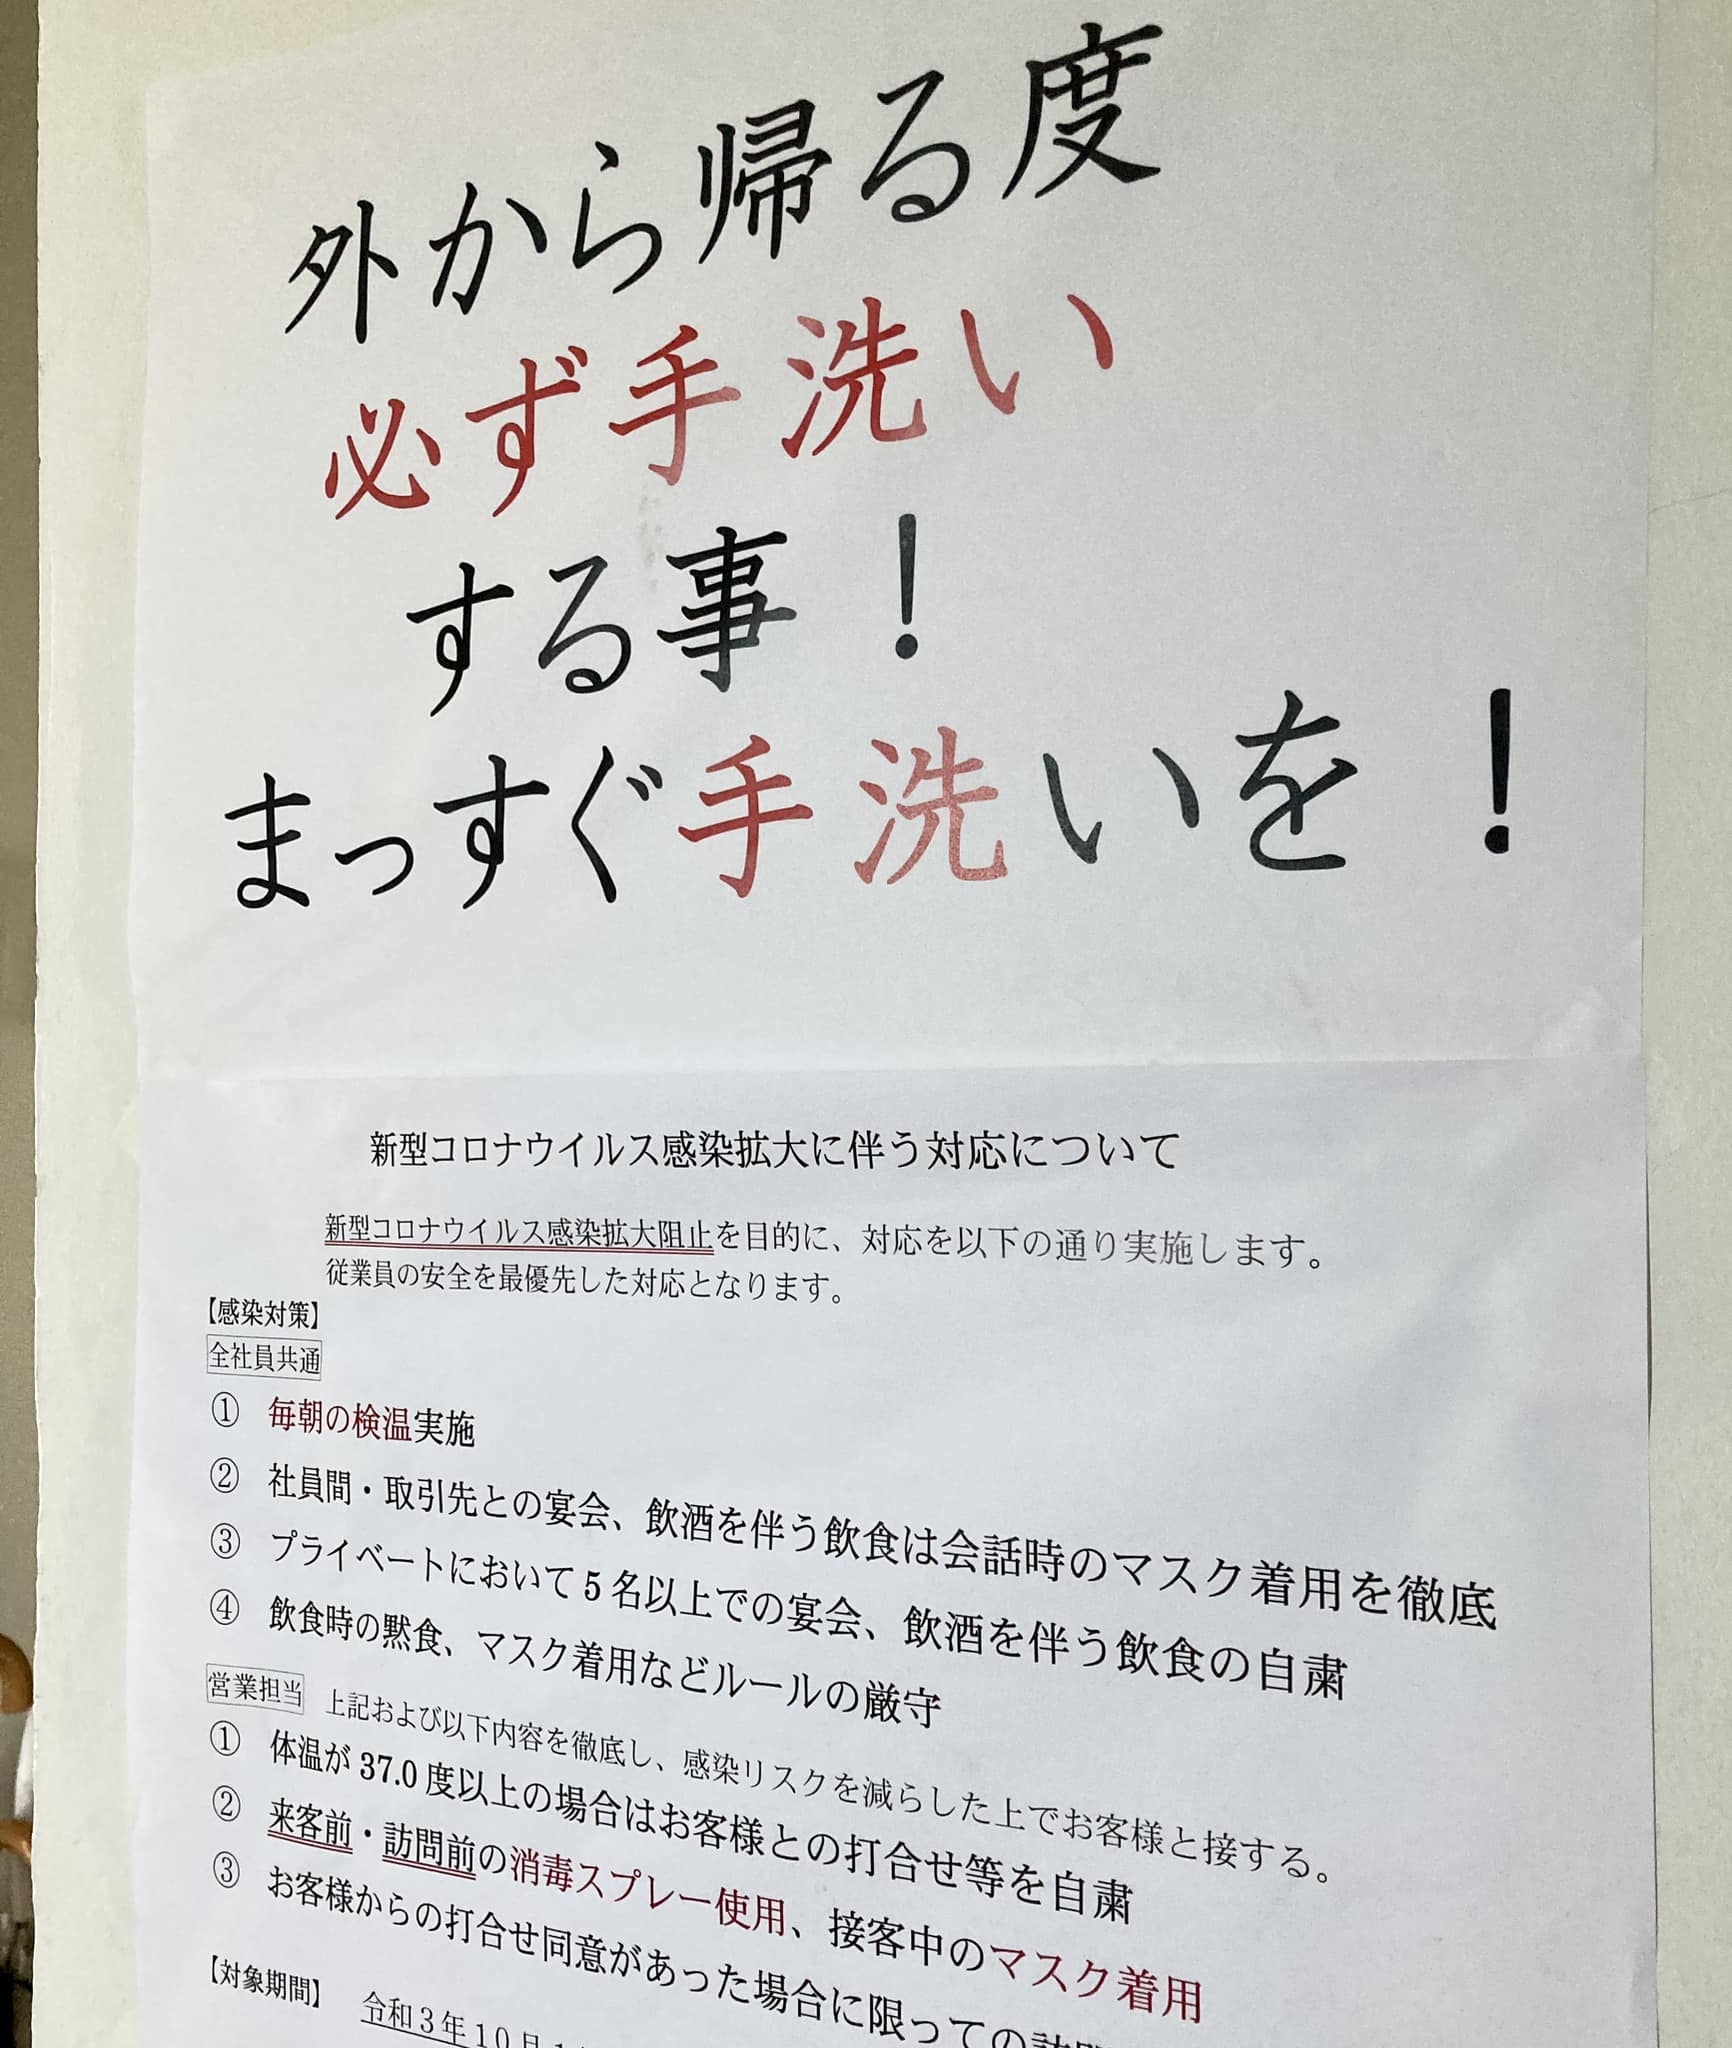 外から帰る度
必ず手洗い
する事！
まっすぐ手洗いを！
新型コロナウイルス感染拡大に伴う対応について
新型コロナウイルス感染拡大阻止を目的に、対応を以下の通り実施します。
従業員の安全を最優先した対応となります。
【感染対策】
全社員共通
① 毎朝の検温実施
② 社員間・取引先との宴会、飲酒を伴う飲食は会話時のマスク着用を徹底
③ プライベートにおいて5名以上での宴会、飲酒を伴う飲食の自粛
④ 飲食時の黙食、マスク着用などルールの厳守
営業担当 上記および以下内容を徹底し、感染リスクを減らした上でお客様と接する。
① 体温が37.0度以上の場合はお客様との打合せ等を自粛
② 来客前・訪問前の消毒スプレー使用、接客中のマスク着用
③ お客様からの打合せ同意があった場合に限っての
【対象期間】
令和3年10月